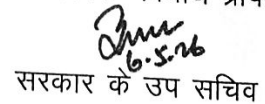 6.5.26
सरकार के उप सचिव